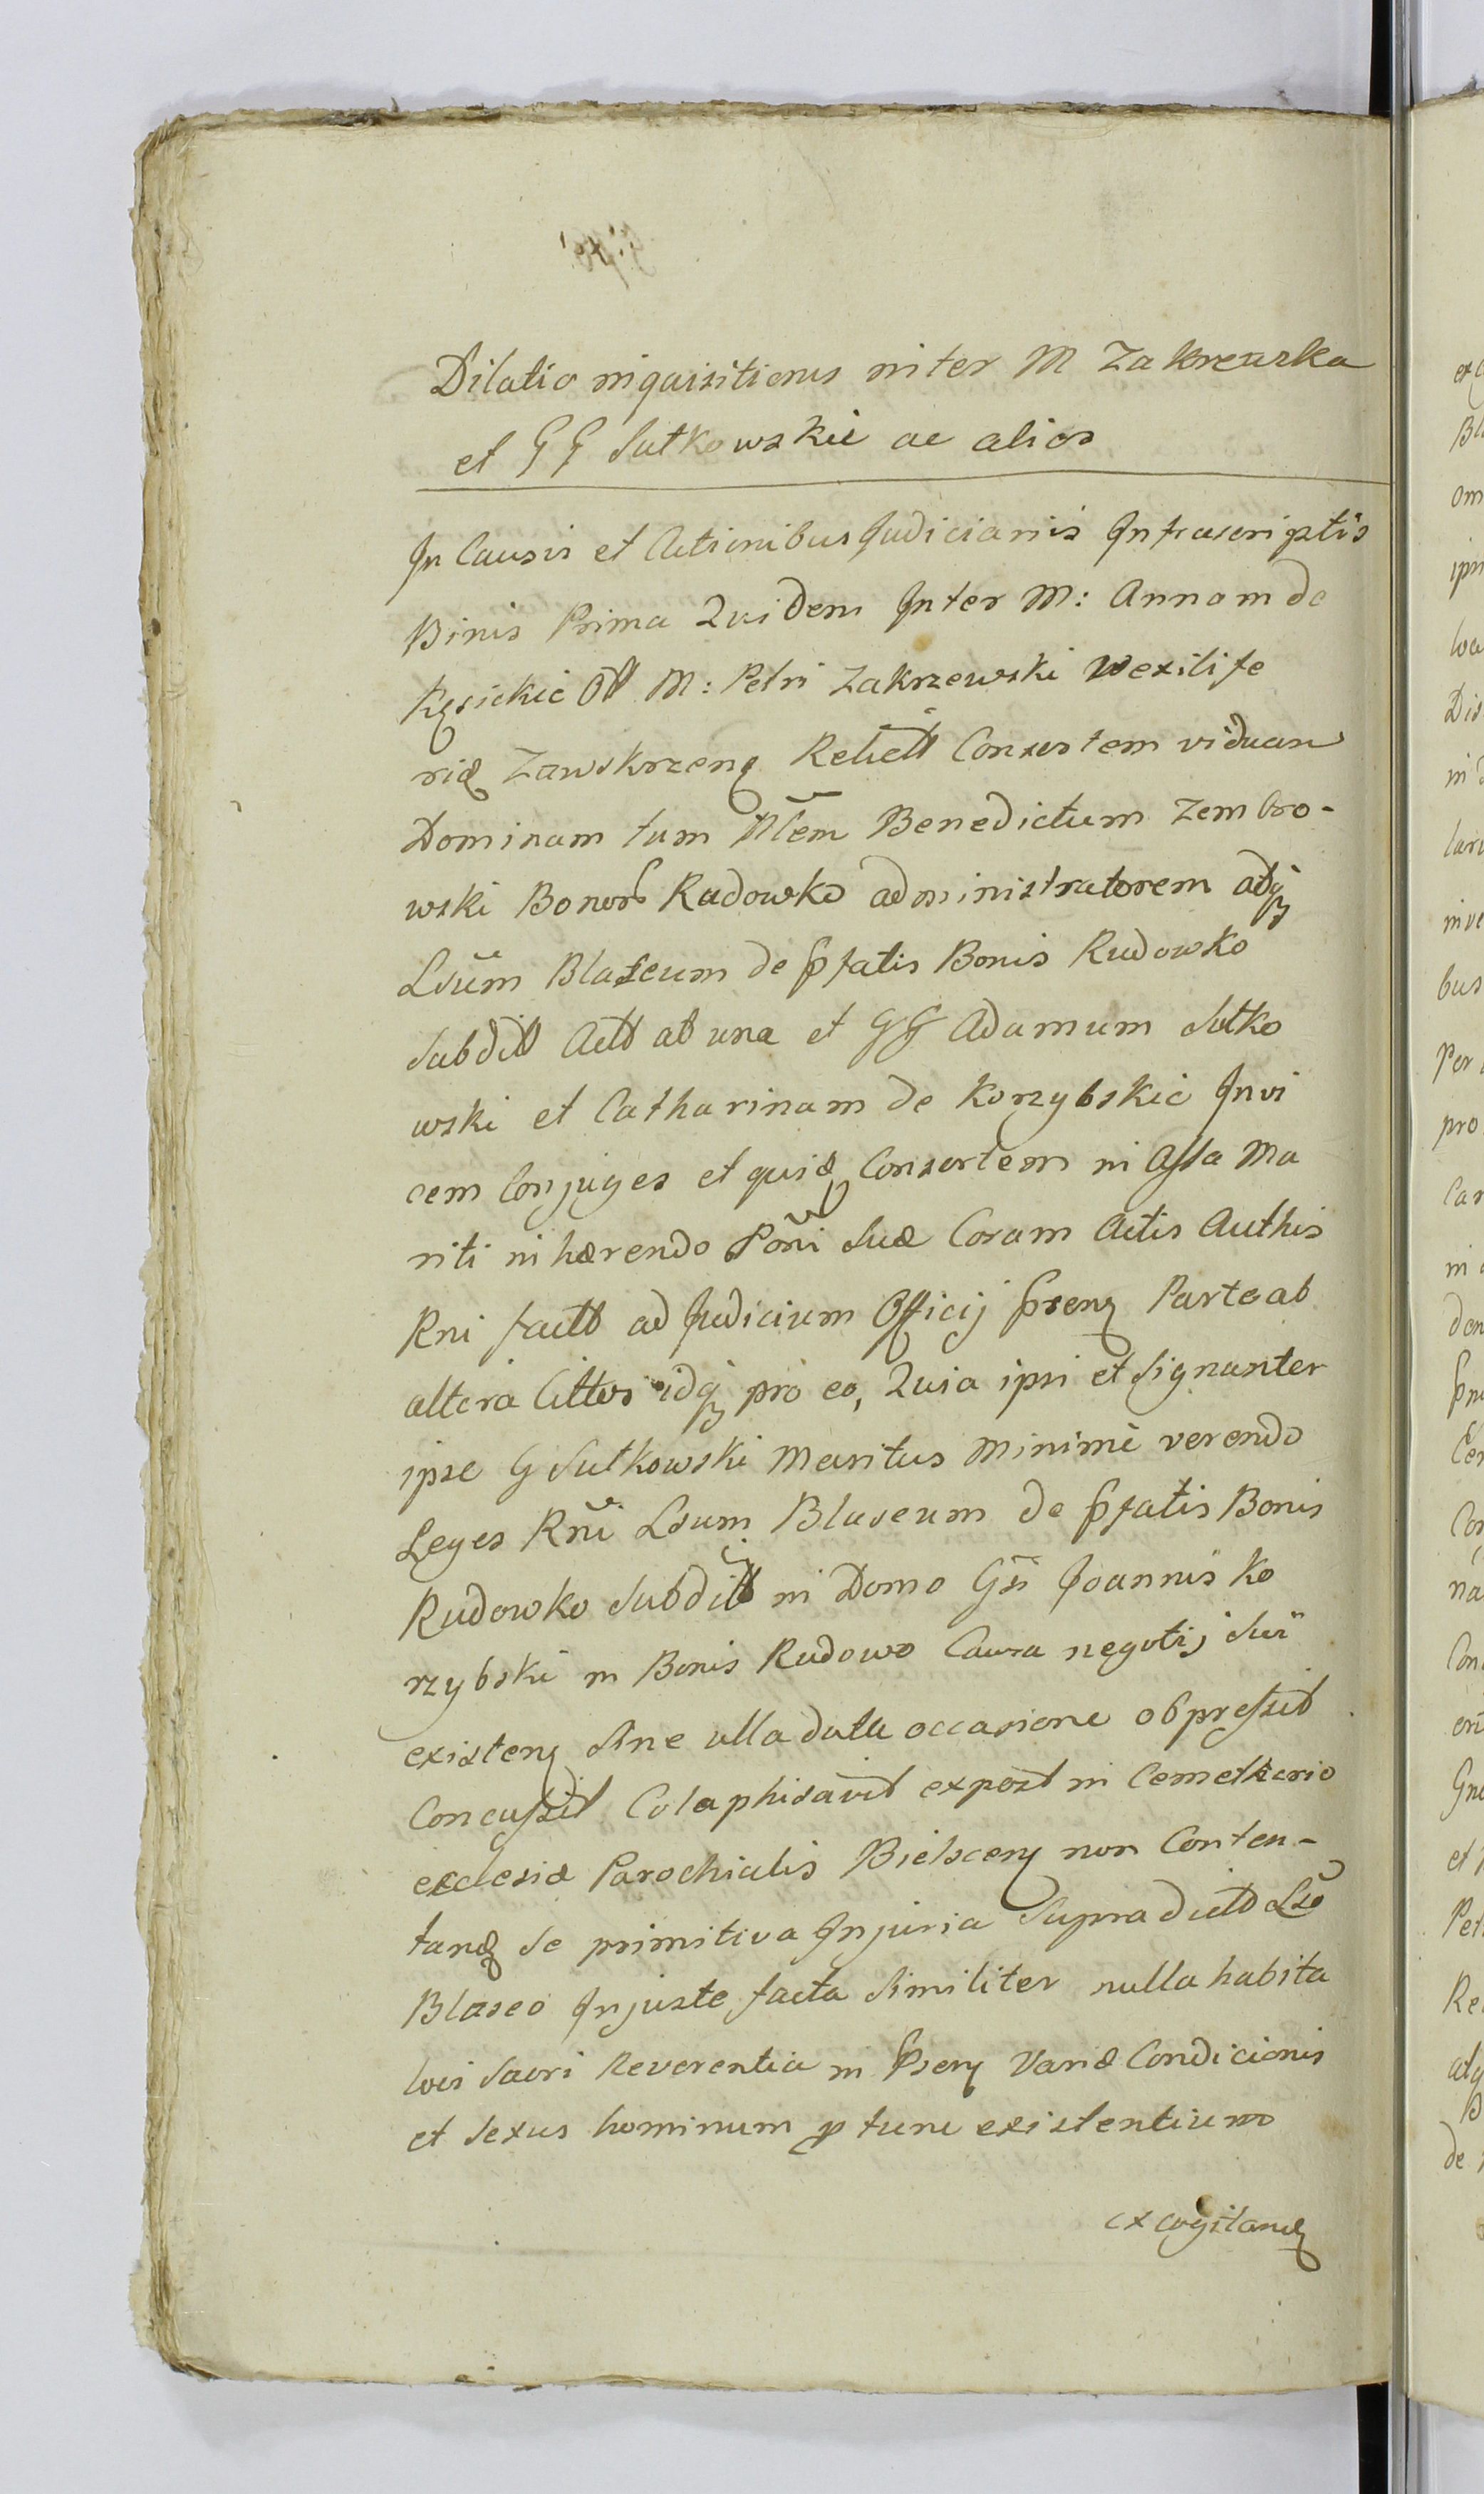 Dilatio inquisitionis inter M Zakrzewska
et GG Sutkowskie ac alios
In Causis et Actionibus Judicianis Infrascriptis
Binis Prima Quidem Inter M: Annam de
Kęsickie Oll M: Petri Zakrzewski Wexilife
riæ Zawskrzenę Relictt Consortem viduam
Dominam tum Nlem Benedictum Zembro-
wski Bonor Rudowko administratorem adqz
Lsum Blaseum de pfatis Bonis Rudowko
Subditt Actt ab una et GG Adamum Sutko
wski et Catharinam de Korzybskie Invi
cem Conjuges et quidę Consortem in Assa Ma
riti inhærendo Poñi Suæ Coram Actis Authis
Rni factt ad Judicium Officij præsenę Parte ab
altera Cittos idqz pro eo, Quia ipsi et signanter
ipse G Sutkowski Maritus Minime verendo
Leges Rni Lsum Blaseum de pfatis Bonis
Rudowko Subditt in Domo Gsi Joannis Ko
rzybski in Bonis Rudowo Causa negotij sui
existenę Sine ulla data occasione obpressit
Concussit Colaphisavit expost in Cemetherio
ecclesiæ Parochialis Bielscenę non Conten-
tandę de primitiva Injuria Supradictto Lso
Blaseo Injuste facta Similiter nulla habita
loci Sacri Reverentia in Psenę Variæ Condicionis
et Sexus hominum p tunc existentium
excogitandę